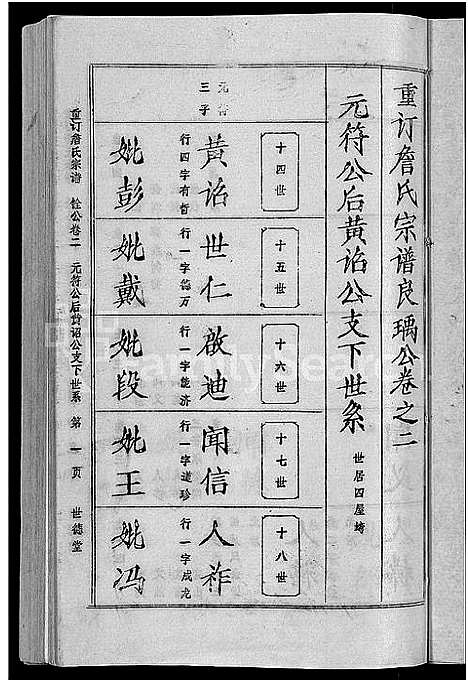 重订詹氏宗谱良瑀公卷之二
元符公后黄诒公支下世系
世居四屋塆
十四世
十五世
十六世
十七世
十八世
元符
三子
黄诒
世仁
啟迪
闻信
人祚
行四字有哲
行一字德万
行一字能济
行一字道珍
行一字成龙
妣彭
妣戴
妣段
妣王
妣冯
重订詹氏宗谱 公卷二 元符公后黄诏公支下世系 第一页 世德堂